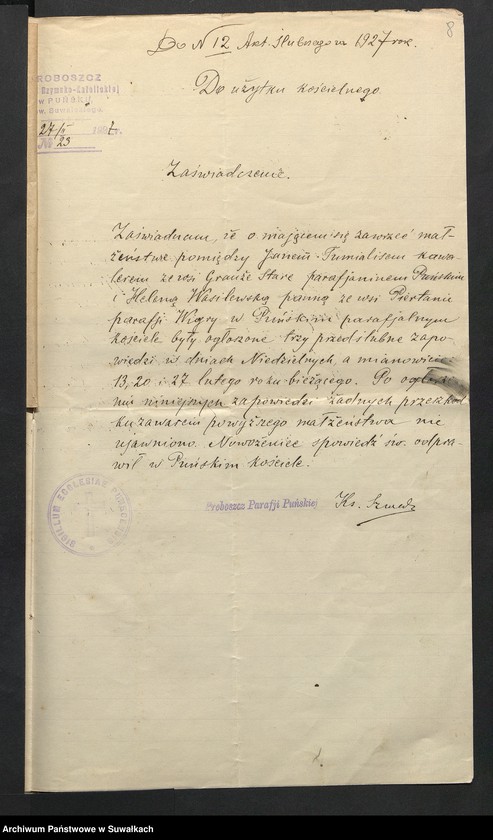 8
Do N 12 Akt. Ślubnego nr 1927 rok.
Do użytku kościelnego
PROBOSZCZ
Rzymsko-Katolickiej
w PUŃSKU
w. Suwalskiego
27/II 192 r.
№ 23
Zaświadczenie.
Zaświadczam, że o mającem się zawrzeć mał-
żeństwie pomiędzy Janem Tumialisem kawa-
lerem ze wsi Grauże Stare parafjaninem Puńskim
i Heleną Wasilewską panną ze wsi Piertanie
parafji Wigry w Puńskim parafjalnym
kościele były ogłoszone trzy przedślubne zapo-
wiedzi w dniach Niedzielnych a mianowicie:
13, 20 i 27 lutego roku bieżącego. Po ogłosze-
niu niniejszych zapowiedzi żadnych przeszkód
ku zawarciu powyższego małżeństwa nie
ujawniono. Nowożeniec spowiedź św. odpra-
wił w Puńskim kościele.
Proboszcz Parafji Puńskiej
Ks.
SIGILLUM ECCLESIAE
Archiwum Państwowe w Suwałkach